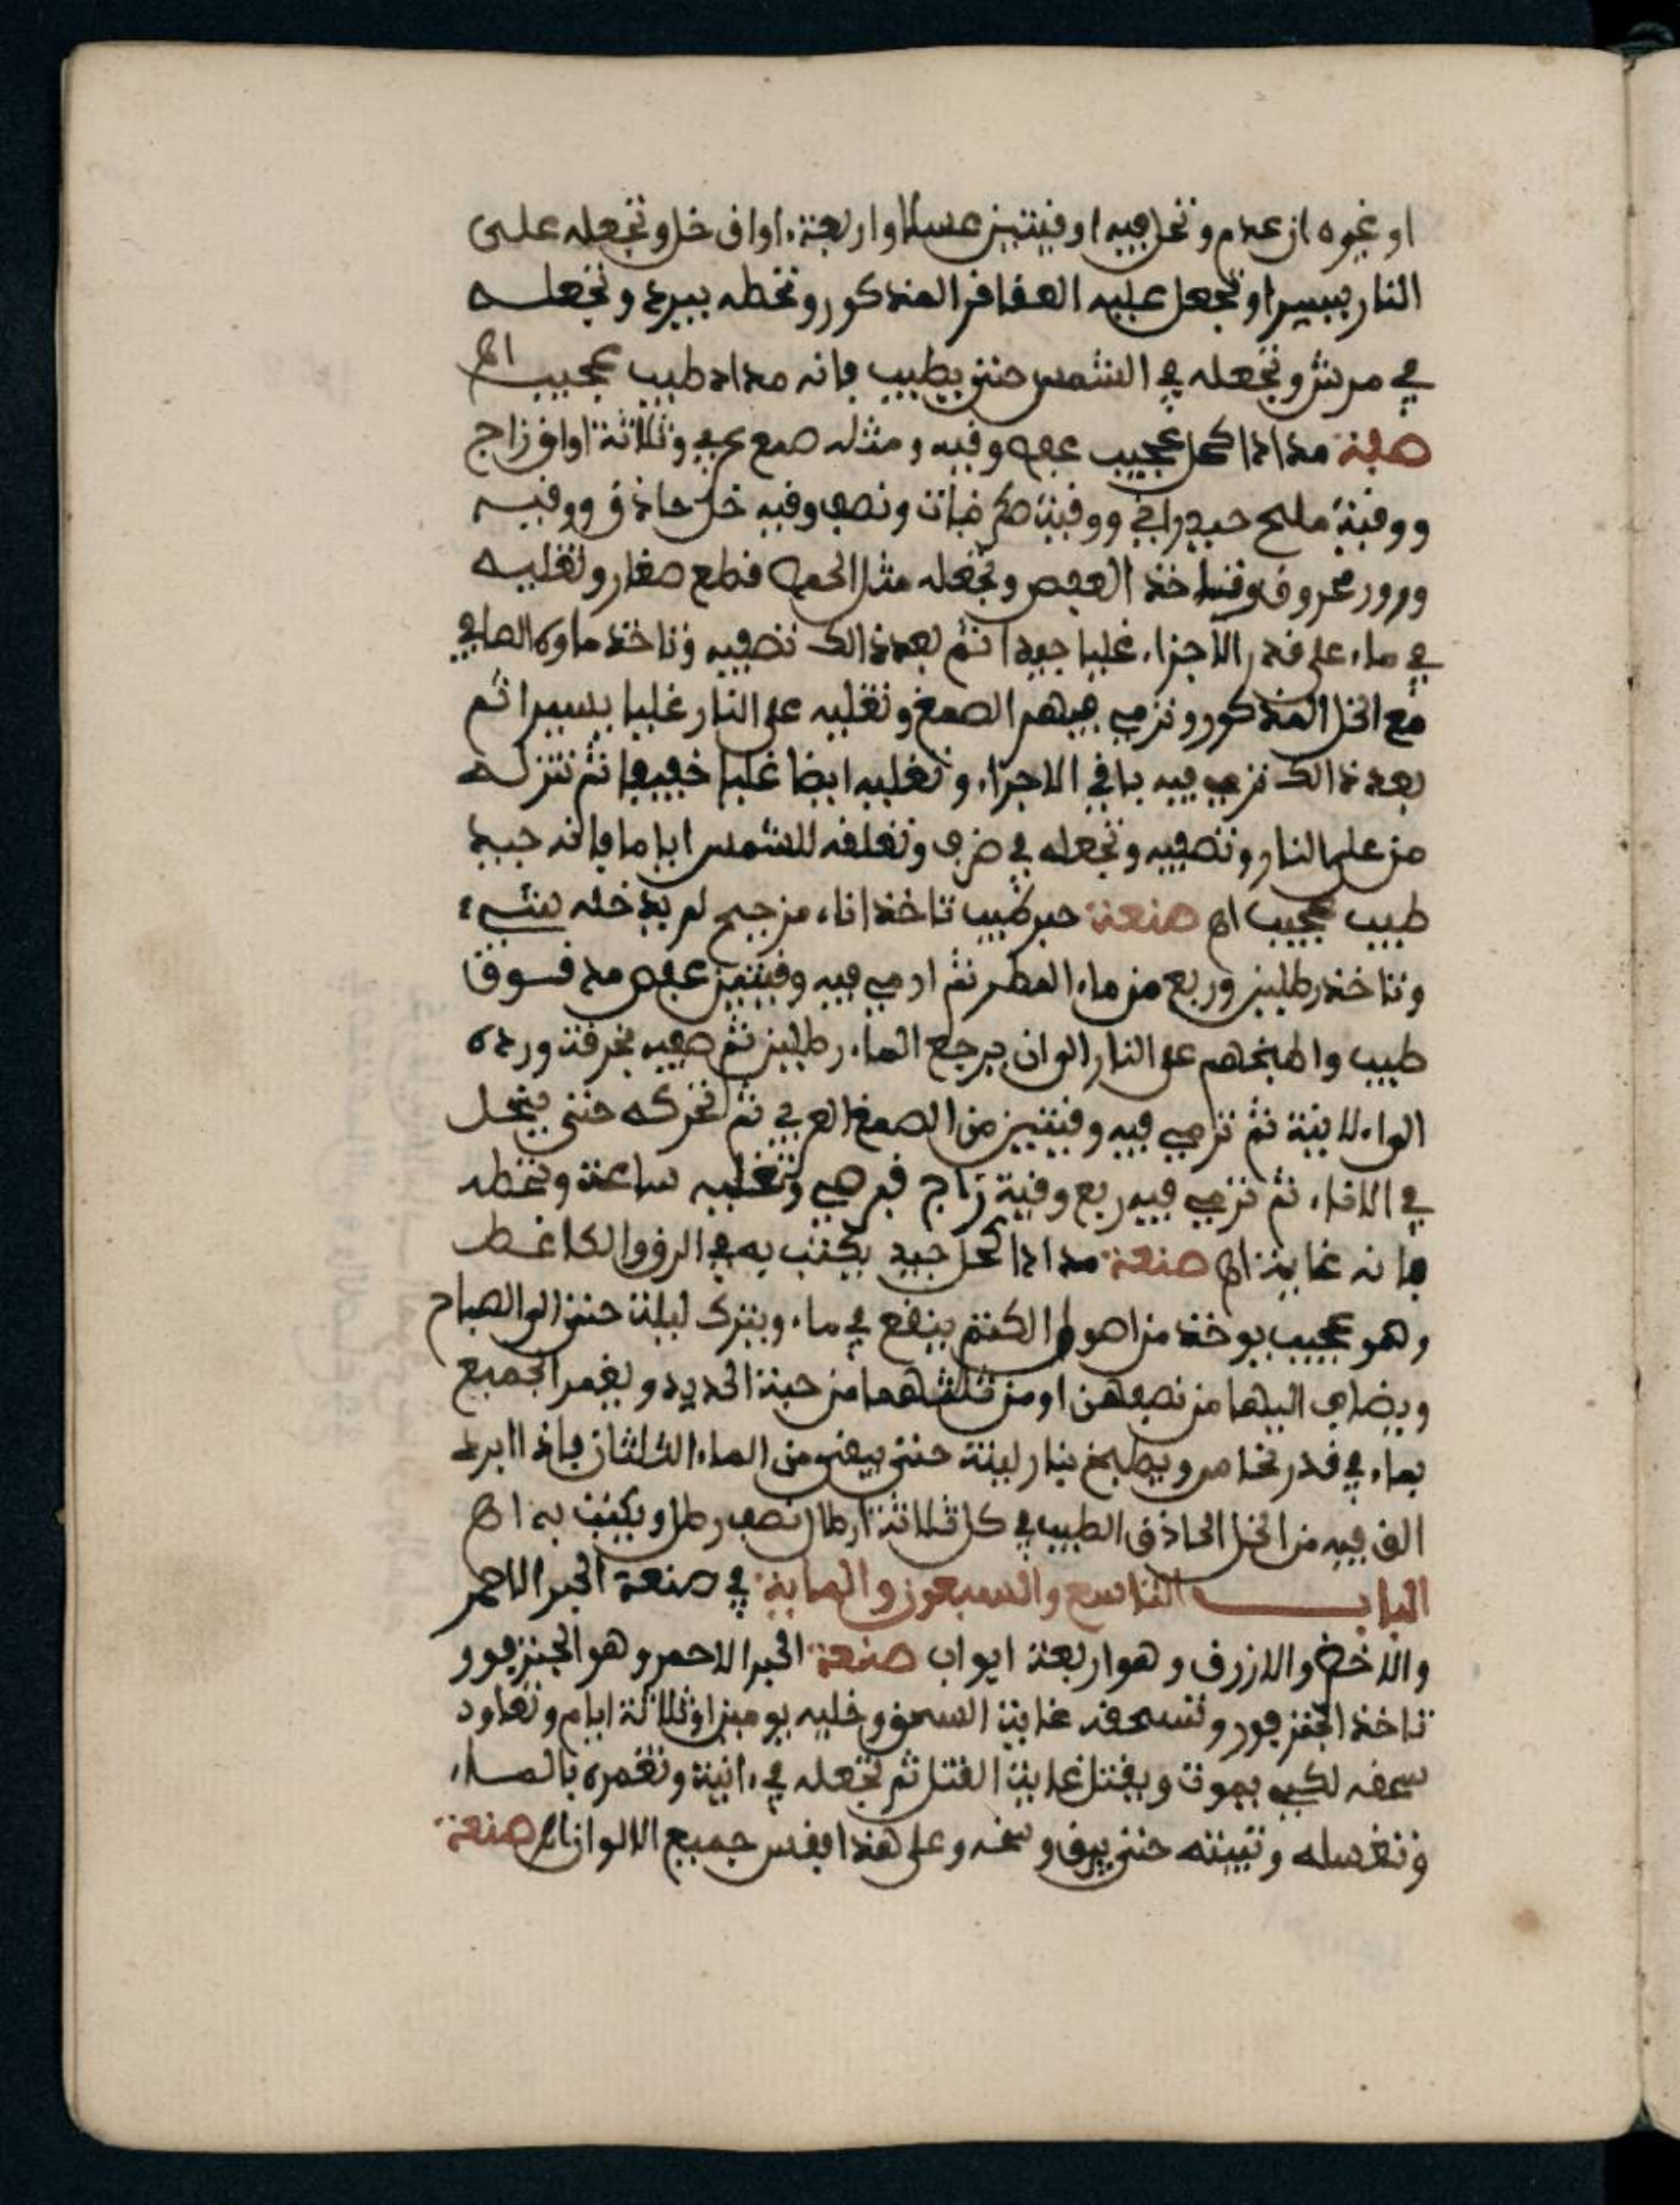 او غيره ان عدم وتحل فيه اوقيتين عسلا واربعة اواق خل وتجعله على
النار يسيرا وتجعل عليه العقاقر المذكور وتحطه يبرد وتجعله
في مرتش وتجعله في الشمس حتى يطيب فإنه مداد طيب عجيب اه
صفة مدادا كحل عجيب عفص وقيه ومثله صمغ عربي وثلاثة اواق زاج
ووقية مليح حيدراني ووقية ونصف وقيه خل حاذق ووقيه
محروق خذ العفص وتجعله مثل الحمص قطع صغار وتغليه
في ماء على قدر الاجزاء غليا جيدا ثم بعد ذالك تصفيه وتاخذ ماوه الصافي
مع الخل المذكور وترمي فيهم الصمغ وتغليه على النار غليا يسيرا ثم
بعد ذالك ترمي فيه باقي الاجزاء وتغليه ايضا غليا خفيفا ثم تنزله
من على النار وتصفيه وتجعله في ضرف وتعلقه للشمس اياما فإنه جيد
طيب عجيب اه صنعة حبر طيب تاخذ اناء مزجج لم يدخله شيء
وتاخذ رطلين وربع من ماء المطر ثم ارمي فيه وقيتين عفص مدقسوق
طيب واطبخهم على النار الى ان يرجع الماء رطلين ثم صفيه بخرقة ورده
الى الانية ثم ترمي فيه وقيتين من الصمغ العربي ثم تحركه حتى ينحل
في الاناء ثم ترمي فيه ربع وقية زاج قبرصي وتغليه ساعة وتحطه
فإنه غاية اه صنعة مدادا كحل جيد يكتب به في الرق والكاغط
وهو عجيب يوخذ من اصول الكتم ينقع في ماء ويترك ليلة حتى الى الصباح
ويضاف اليهما من نصفهن او من ثلثهما من خبث الحديد ويغمر الجميع
بماء في قدر نحاس ويطبخ بنار لينة حتى يفنى من الماء الثلثان فإذا ابرد
الق فيه من الخل الحاذق الطيب في كل ثلاثة ارطال نصف رطل ويكتب به اه
الباب التاسع والسبعون والماية في صنعة الحبر الاحمر
والاخضر والازرق وهو اربعة ابواب صنعة الحبر الاحمر وهو الجنزفور
تاخذ الجنزفور وتسحقه غاية السحق وخليه يومين او ثلاثة ايام وتعاود
سحقه لكي يموت ويفتل غاية الفتل ثم تجعله في انية وتغمره بالماء
وتغسله وتبيته حتى يرق وسخه وعلى هذا يقس جميع الالوان اه صنعة